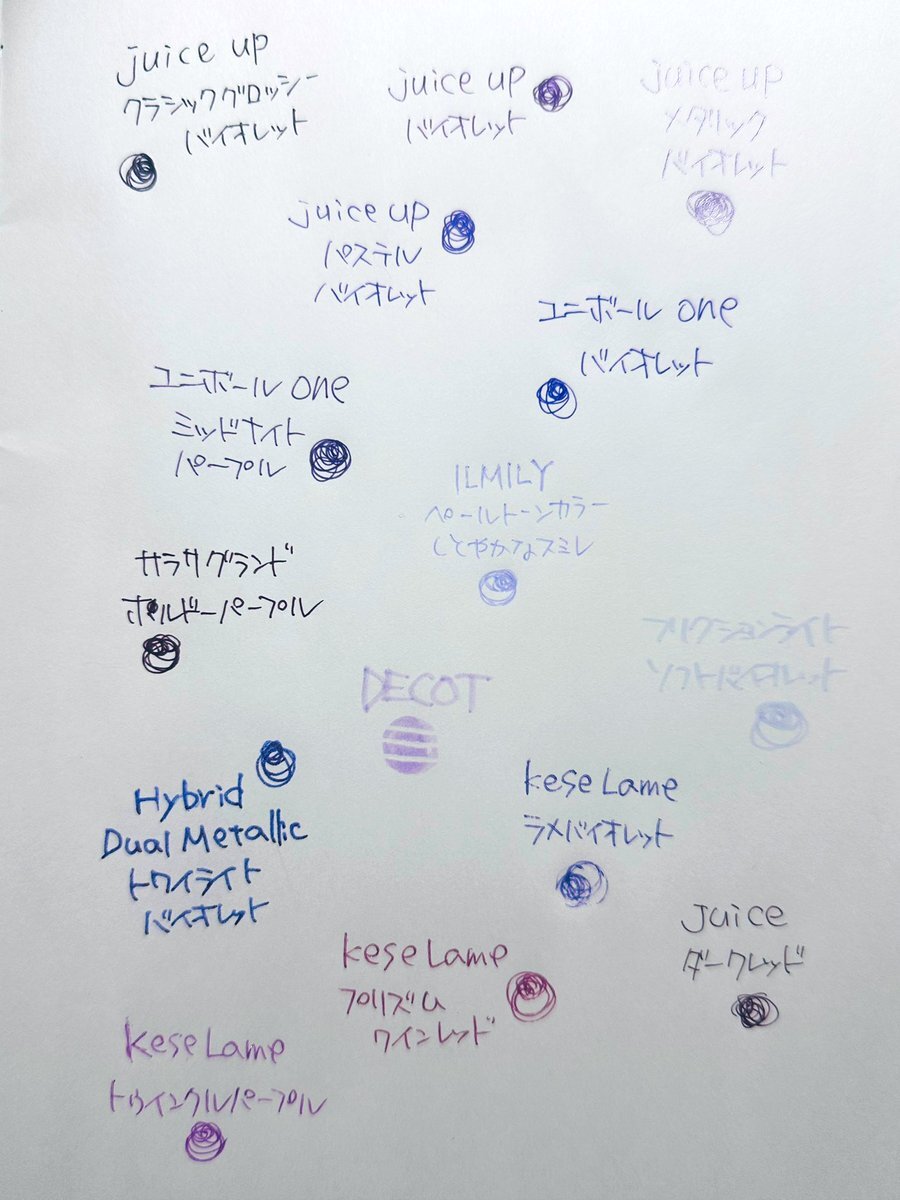 juice up
クラシックグロッシー
バイオレット
juice up
バイオレット
juice up
メタリック
バイオレット
juice up
パステル
バイオレット
ユニボール one
バイオレット
ユニボール one
ミッドナイト
パープル
ILMILY
ペールトーンカラー
しとやかなスミレ
サラサグランド
ボルドーパープル
フリクションライト
ソフトバイオレット
DECOT
Hybrid
Dual Metallic
トワイライト
バイオレット
kese Lame
ラメバイオレット
Juice
ダークレッド
kese Lame
プリズム
ワインレッド
kese Lame
トゥインクルパープル